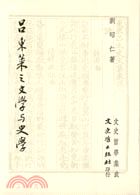 劉昭仁著
呂東萊之文學与史學
文史哲學集成
文史哲出版社印行